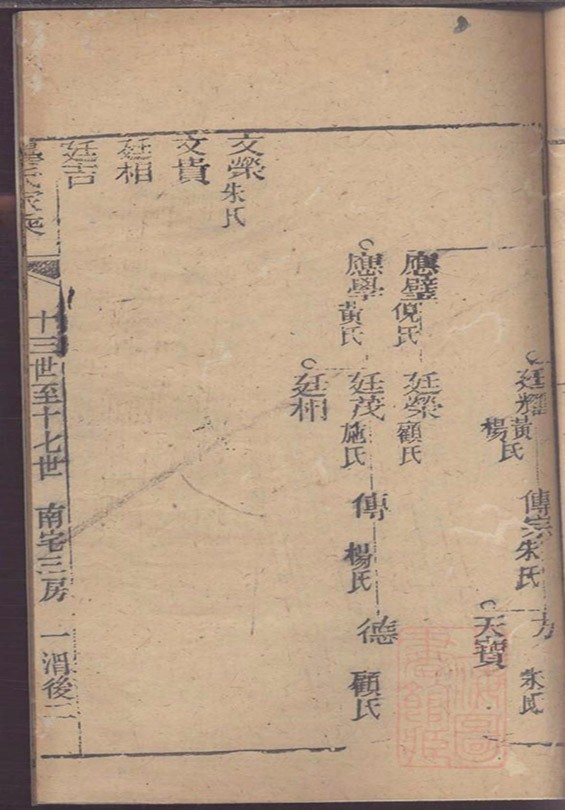 廷耀 黃氏 楊氏
傳宗 朱氏
方 朱氏
天寶
應璧 倪氏
廷榮 顧氏
應學 黃氏
廷茂 施氏
傳 楊氏
德 顧氏
廷相
文榮 朱氏
文貴
廷相
廷吉
氏家乘
十三世至十七世 南宅三房 一渭後二